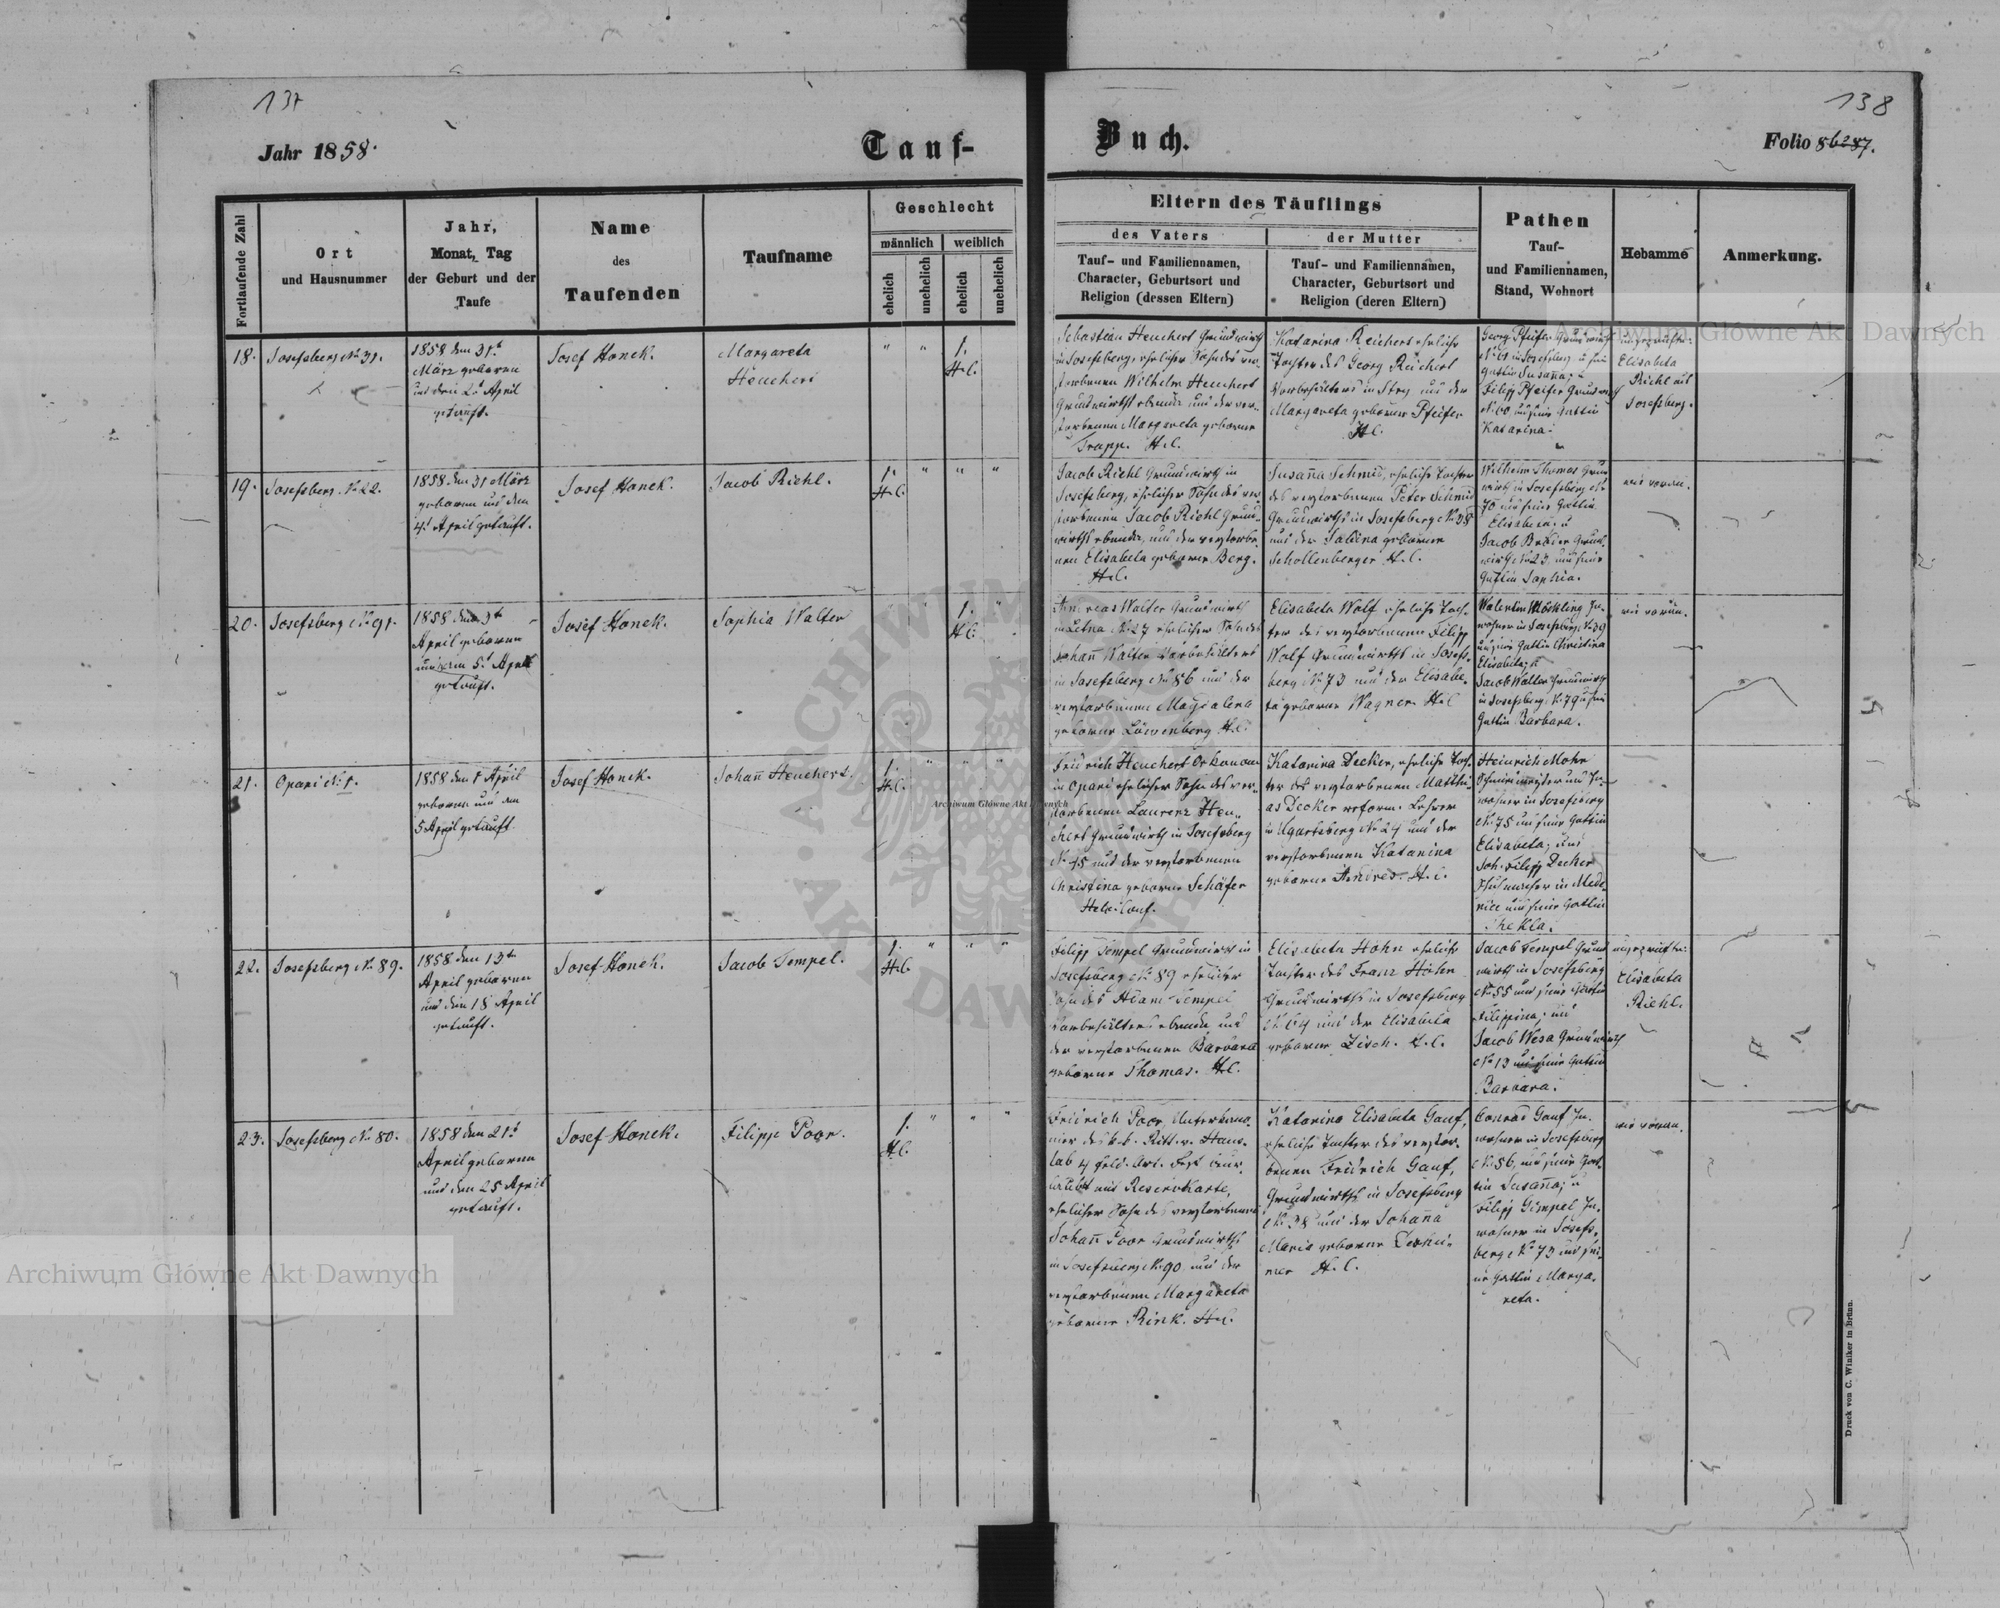 137
138
Jahr 1858.
Tauf-
Buch.
Folio 86
Fortlaufende Zahl
Ort
und Hausnummer
Jahr,
Monat, Tag
der Geburt und der
Taufe
Name
des
Taufenden
Taufname
Geschlecht
männlich
weiblich
ehelich
unehelich
ehelich
unehelich
Eltern des Täuflings
des Vaters
Tauf- und Familiennamen,
Character, Geburtsort und
Religion (dessen Eltern)
der Mutter
Tauf- und Familiennamen,
Character, Geburtsort und
Religion (deren Eltern)
Pathen
Tauf-
und Familiennamen,
Stand, Wohnort
Hebamme
Anmerkung.
18.
Josefsberg No 31.
1858 den 31t
März geboren
und den 2t April
getauft.
Josef Honek.
Margareta
Heuchert
" "
1.
H.C.
Sebastian Heuchert Grundwirth
in Josefsberg, ehelicher Sohn des ver-
storbenen Wilhelm Heuchert
Grundwirths ebenda und der ver-
storbenen Margareta geborne
Trapp. H.C.
Katarina Reichert eheliche
Tochter des Georg Reichert
Vorbehälters in Stryj und der
Margareta geborne Pfeifer
H.C.
Georg Pfeifer Grundwirth
in Josefsberg u seine
Gattin Susanna; u
Filipp Pfeifer Grundwirth
und seine Gattin
Katarina.
Elisabeta
Riehl aus
Josefsberg.
19.
Josefsberg. No 22.
1858 den 31 März
geboren und den
4t April getauft.
Josef Honek.
Jacob Riehl.
1.
H.C.
" " "
Jacob Riehl Grundwirth in
Josefsberg, ehelicher Sohn des ver-
storbenen Jacob Riehl Grund-
wirths ebenda, und der verstorbe-
nen Elisabeta geborne Berg.
H.C.
Susanna Schmid, eheliche Tochter
des verstorbenen Peter Schmid
Grundwirths in Josefsberg No 38
und der Sabina geborne
Schollenberger H.C.
Wilhelm Thomas Grund-
wirth in Josefsberg No
70 und seine Gattin
Elisabeta. u
Jacob Bräder Grund-
wirth No 23 und seine
Gattin Sophia.
wie voran.
20.
Josefsberg No 91.
1858 den 3t
April geboren
und den 5t April
getauft.
Josef Honek.
Sophia Walter
" "
1.
H.C.
"
Andreas Walter Grundwirth
in Letna No 27 ehelicher Sohn des
Johann Walter Vorbehälters
in Josefsberg No 86 und der
verstorbenen Magdalena
geborne Löwenberg H.C.
Elisabeta Wolf eheliche Toch-
ter des verstorbenen Filipp
Wolf Grundwirths in Josefs-
berg No 73 und der Elisabe-
ta geborne Wagner. H.C
Valentin In-
wohner in Josefsberg No 39
und seine Gattin Christina
Elisabeta; u
Jacob Walter Grundwirth
in Josefsberg No 79 u seine
Gattin Barbara.
wie voran.
21.
Opari No 1.
1858 den 1 April
geboren und den
5 April getauft
Josef Honek.
Johann Heuchert.
1.
H.C.
" " "
Fridrich Heuchert Oekonom
in Opari ehelicher Sohn des ver-
storbenen Laurenz Heu-
chert Grundwirth in Josefsberg
No 45 und der verstorbenen
Christina geborne Schäfer
Helv. Conf.
Katarina Decker, eheliche Toch-
ter des verstorbenen Matthi-
as Decker reform. Lehrer
in Ugartsberg No 24 und der
verstorbenen Katarina
geborne Andres. H.C.
Heinrich Mohr
und In-
wohner in Josefsberg
No 75 und seine Gattin
Elisabeta; und
Joh. Filipp Decker
in Mede-
nice und seine Gattin
Thekla.
22.
Josefsberg No 89.
1858 den 13t
April geboren
und den 18 April
getauft.
Josef Honek.
Jacob Tempel.
1.
H.C.
" " "
Filipp Tempel Grundwirth in
Josefsberg No 89 ehelicher
Sohn des Adam Tempel
Vorbehälters ebenda und
der verstorbenen Barbara
geborne Thomas. H.C.
Elisabeta Höhn eheliche
Tochter des Franz Höhn
Grundwirths in Josefsberg
No 64 und der Elisabeta
geborne Zisch. H.C.
Jacob Tempel Grund-
wirth in Josefsberg
No 55 und seine Gattin
Filippina; und
Jacob Wesa Grundwirth
No 13 und seine Gattin
Barbara.
Elisabeta
Riehl.
23.
Josefsberg No 80.
1858 den 21t
April geboren
und den 25 April
getauft.
Josef Honek.
Filipp Poor.
1.
H.C.
" " "
Fridrich Poor, Unterkano-
nier des k.k. Ritt. v. Haus-
lab 4 Feld. Art. Regt beur-
laubt mit Reservkarte,
ehelicher Sohn des verstorbenen
Johann Poor Grundwirths
in Josefsberg No 90 und der
verstorbenen Margareta
geborne Rink. H.C.
Katarina Elisabeta Gauf,
eheliche Tochter des verstor-
benen Fridrich Gauf,
Grundwirths in Josefsberg
No 38 und der Johanna
Maria geborne
H.C.
Conrad Gauf In-
wohner in Josefsberg
No 56, und seine Gat-
tin Susanna; u
Filipp Gimpel In-
wohner in Josefs-
berg No 73 und sei-
ne Gattin Marga-
reta.
wie voran.
Druck von C. Winiker in Brünn.
Archiwum Główne Akt Dawnych
Archiwum Główne Akt Dawnych
Archiwum Główne Akt Dawnych